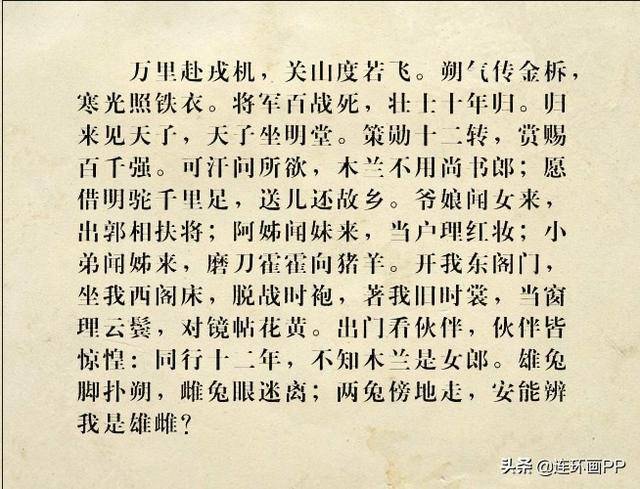 万里赴戎机，关山度若飞。朔气传金柝，
寒光照铁衣。将军百战死，壮士十年归。归
来见天子，天子坐明堂。策勋十二转，赏赐
百千强。可汗问所欲，木兰不用尚书郎；愿
借明驼千里足，送儿还故乡。爷娘闻女来，
出郭相扶将；阿姊闻妹来，当户理红妆；小
弟闻姊来，磨刀霍霍向猪羊。开我东阁门，
坐我西阁床，脱战时袍，著我旧时裳，当窗
理云鬓，对镜帖花黄。出门看伙伴，伙伴皆
惊惶：同行十二年，不知木兰是女郎。雄兔
脚扑朔，雌兔眼迷离；两兔傍地走，安能辨
我是雄雌？
头条 @连环画PP